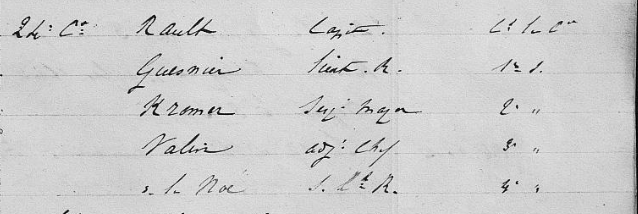 24e Cie Rault Capit. Ct la Cie
Guesnier Lieut. R. 1re S.
Kromer Serjt Major 2e "
Valin adjt Chef 3e "
de la Noë S. Lt R. 4e "